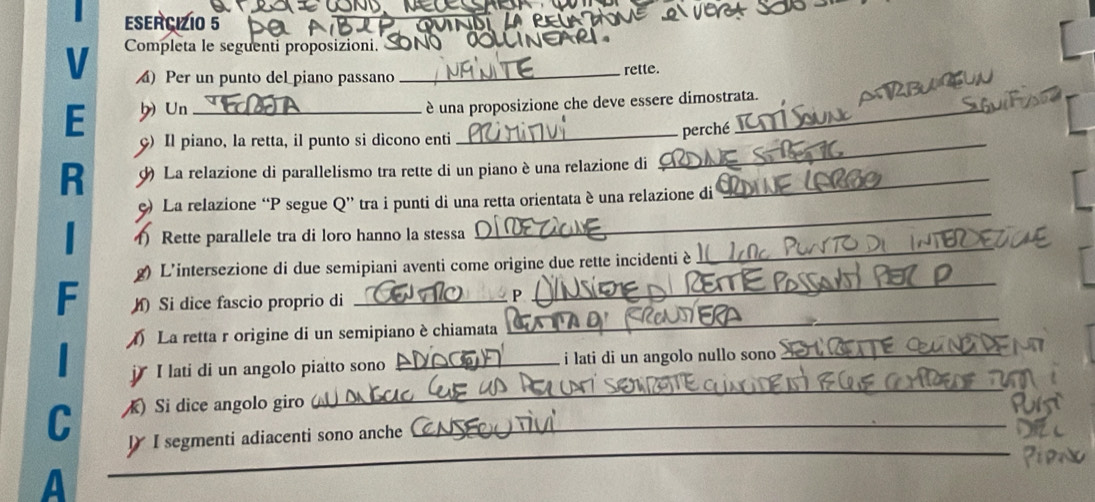 ESERCIZIO 5 DA A, B E P QUINDI LA RELAZIONE
Completa le seguenti proposizioni. SONO COLLINEARI.
a) Per un punto del piano passano INFINITE rette.
b) Un TEOREMA è una proposizione che deve essere dimostrata.
c) Il piano, la retta, il punto si dicono enti PRIMITIVI perché
d) La relazione di parallelismo tra rette di un piano è una relazione di ORDINE STRETTO
e) La relazione “P segue Q” tra i punti di una retta orientata è una relazione di ORDINE LARGO
f) Rette parallele tra di loro hanno la stessa DIREZIONE
g) L'intersezione di due semipiani aventi come origine due rette incidenti è IL PUNTO DI INTERSEZIONE
h) Si dice fascio proprio di CENTRO P L'INSIEME DI RETTE PASSANTI PER P
i) La retta r origine di un semipiano è chiamata RETTA DI FRONTIERA
j) I lati di un angolo piatto sono ADIACENTI i lati di un angolo nullo sono SEMIRETTE COINCIDENTI
k) Si dice angolo giro UN ANGOLO CHE HA PER LATI SEMIRETTE COINCIDENTI E CHE COMPRENDE TUTTI I PUNTI DEL PIANO
l) I segmenti adiacenti sono anche CONSECUTIVI
VERIFICA